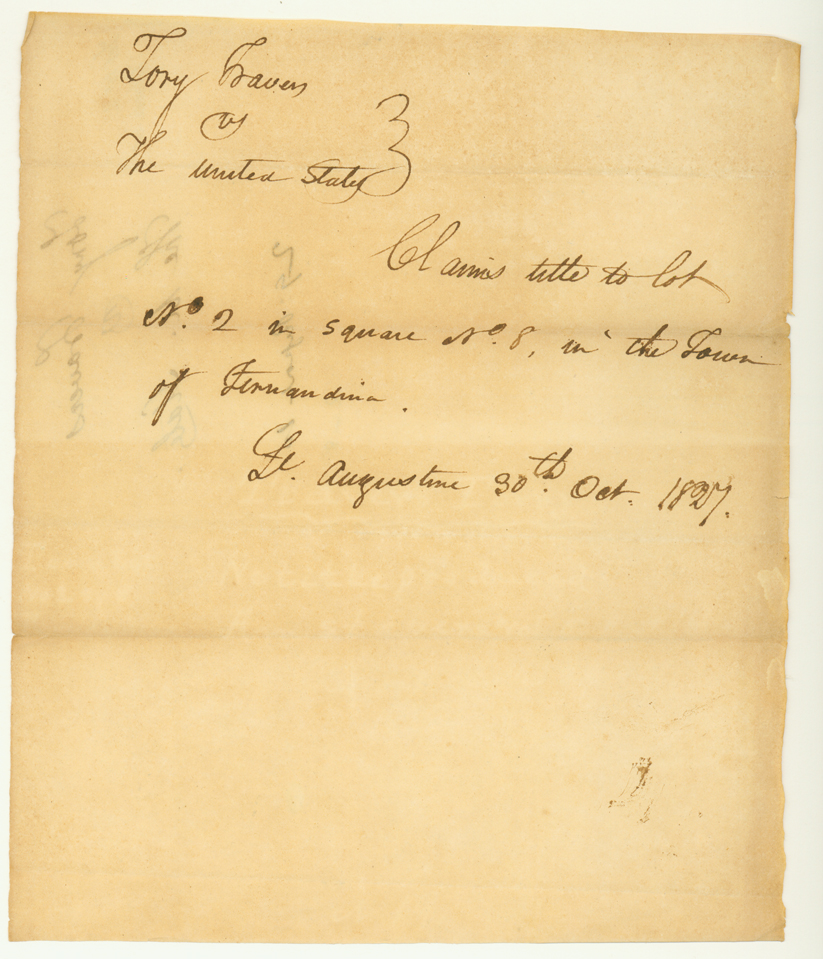 Tory Travers
vs
The United States
Claims title to lot
No. 2 in Square No. 8, in the Town
of Fernandina.
St. Augustine 30th. Oct. 1827.